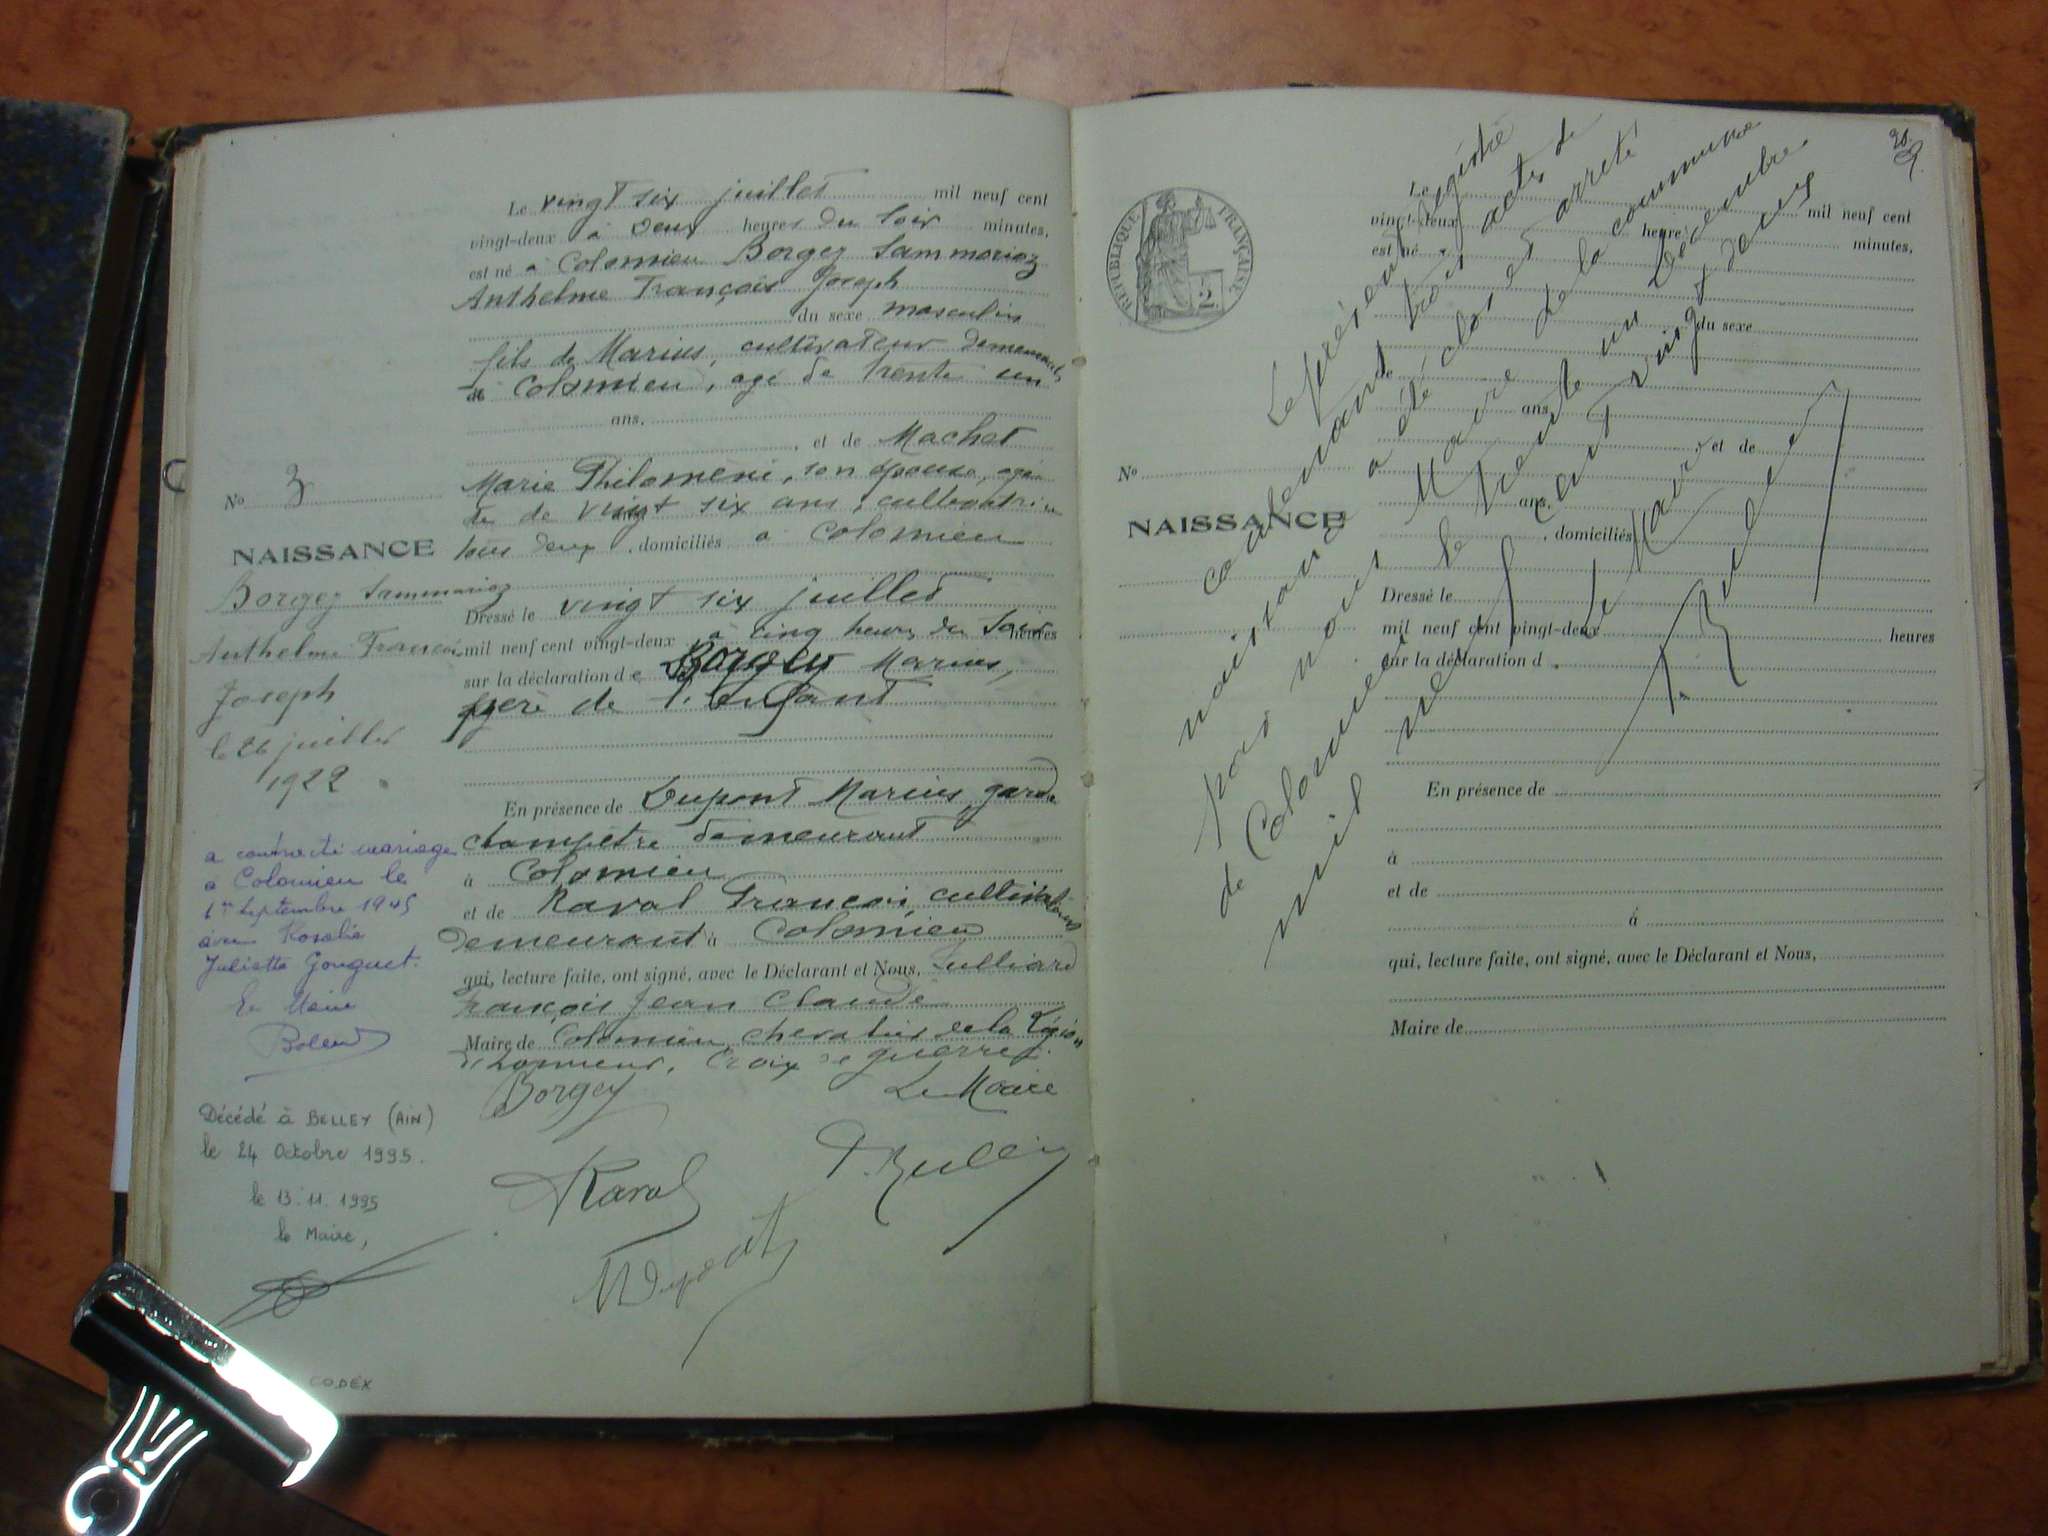 Le vingt six juillet mil neuf cent
vingt-deux à deux heures du soir minutes,
est né à Colomieu Borgey Sammarioz
Anthelme François Joseph
du sexe masculin
fils de Marius, cultivateur demeurant
à Colomieu, agé de trente un
ans.
, et de Machet
Marie Philomène, son épouse, agée
de vingt six ans, cultivatrice
tous deux, domiciliés à Colomieu
Dressé le vingt six juillet
mil neuf cent vingt-deux à cinq heures du soir heures
sur la déclaration de Borgey Marius,
père de l'enfant
En présence de Dupont Marius, garde
champêtre demeurant
à Colomieu
et de Raval François, cultivateur
demeurant à Colomieu
qui, lecture faite, ont signé, avec le Déclarant et Nous,
François Jean Claude
Maire de Colomieu, chevalier de la Légion
d'honneur, Croix de guerre.
Borgey Le Maire
Raval
MDupont
No 3
NAISSANCE
Borgey Sammarioz
Anthelme François
Joseph
le 26 juillet
1922
a contracté mariage
à Colomieu le
1er Septembre 1945
avec Rosalie
Juliette Gonguet.
Le Maire
Décédé à BELLEY (AIN)
le 24 Octobre 1995.
le 13.11.1995
le Maire,
CODEX
REPUBLIQUE FRANÇAISE
2
Le présent registre
contenant trois actes de
naissance a été clos et arrêté
par nous Maire de la commune
de Colomieu le trente un Décembre
mil neuf cent vingt deux
Le Maire
Le
vingt-deux heure mil neuf cent
est né minutes,
du sexe
de
ans.
, et de
No
ans.
NAISSANCE
, domiciliés
Dressé le
mil neuf cent vingt-deux heures
sur la déclaration d
En présence de
à
et de
à
qui, lecture faite, ont signé, avec le Déclarant et Nous,
Maire de